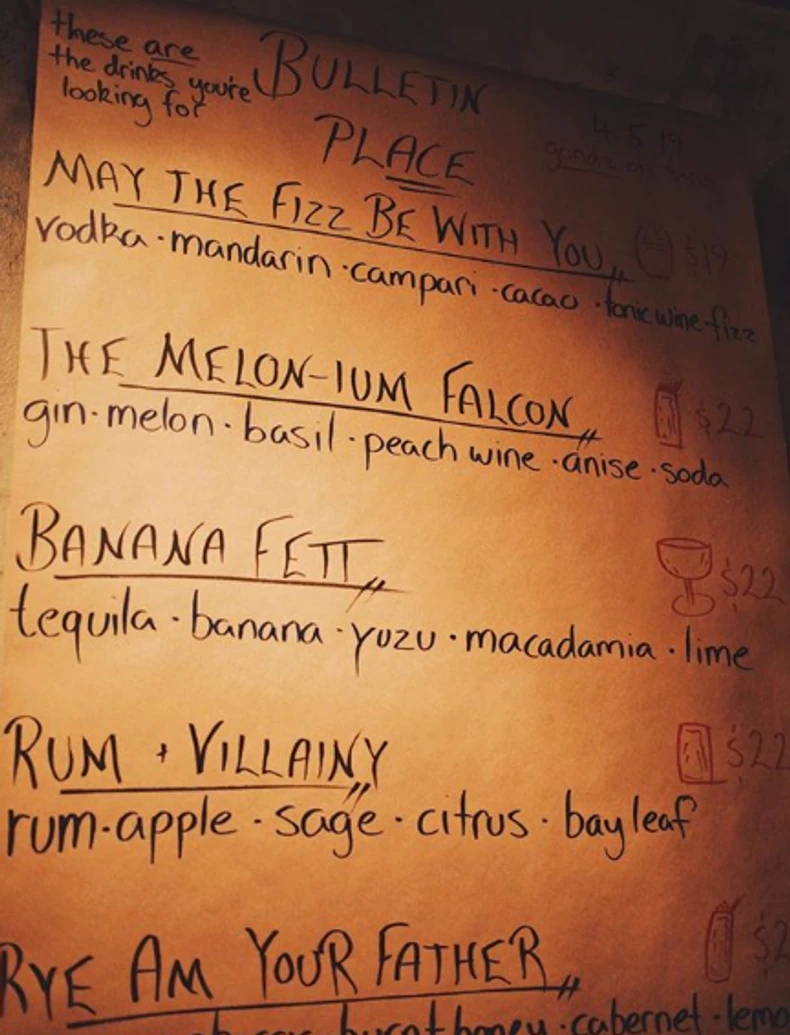 these are
the drinks you're
looking for
BULLETIN
PLACE
4.5.19
MAY THE FIZZ BE WITH YOU $19
vodka · mandarin · campari · cacao · tonic wine · fizz
THE MELON-IUM FALCON $22
gin · melon · basil · peach wine · anise · soda
BANANA FETT $22
tequila · banana · yuzu · macadamia · lime
RUM + VILLAINY $22
rum · apple · sage · citrus · bay leaf
RYE AM YOUR FATHER $2
burnt honey · cabernet · lemo